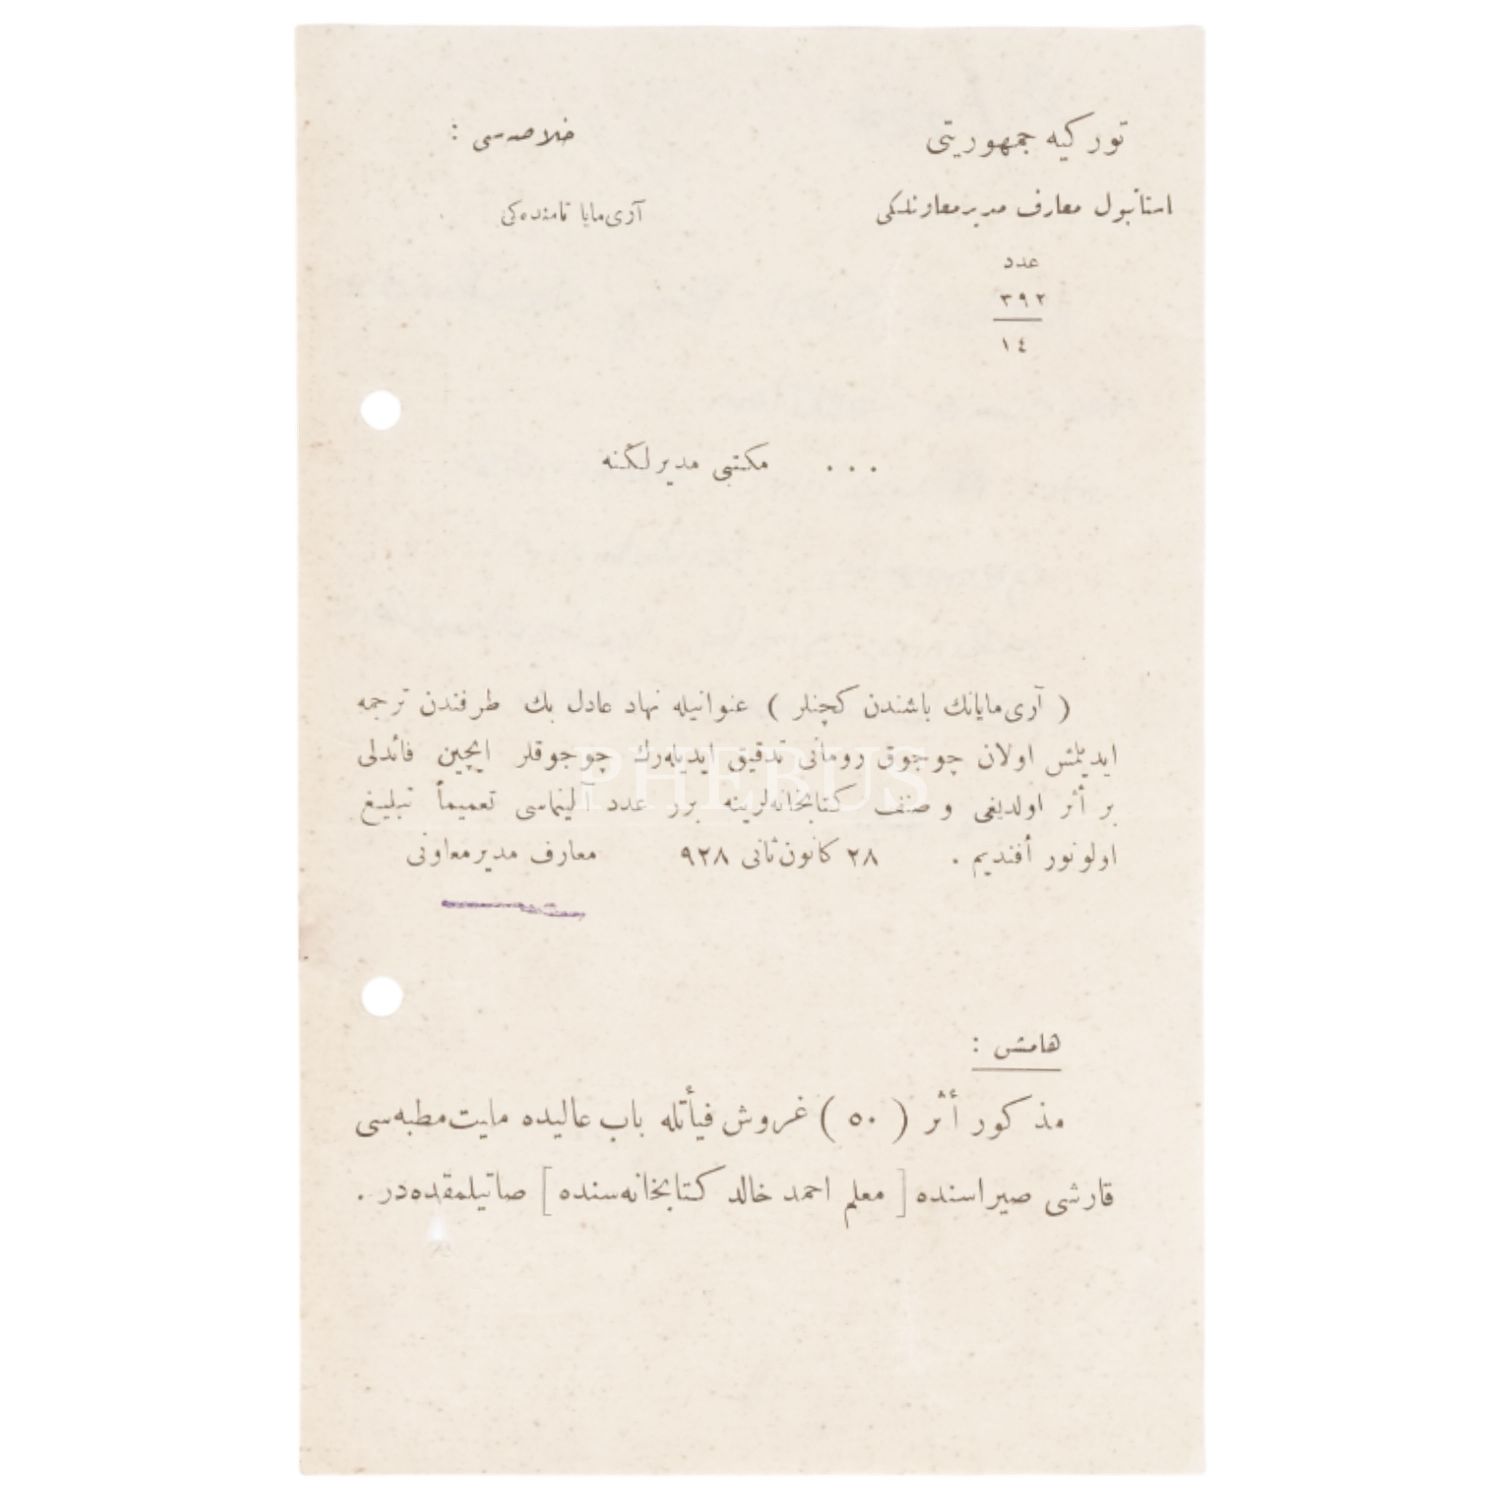 توركیه جمهوریتی
خلاصه‌سی :
استانبول معارف مدیر معاونلكی
آری‌مایا نامنده‌كی
عدد
٣٩٢
١٤
... مكتبی مدیرلگنه
( آری‌مایانك باشندن كچنلر ) عنوانیله نهاد عادل بك طرفندن ترجمه
ایدیلمش اولان چوجوق رومانی تدقیق ایدیله‌رك چوجوقلر ایچین فائدلی
بر أثر اولدیغی و صنف كتابخانه‌لرینه برر عدد آلینماسی تعمیماً تبلیغ
اولونور أفندیم . ٢٨ كانون‌ثانی ٩٢٨ معارف مدیرمعاونی
PHEBUS
هامش :
مذكور أثر ( ٥٠ ) غروش فیأتله باب عالیده ملیت‌مطبعه‌سی
قارشی صیراسنده [ معلم احمد خالد كتابخانه‌سنده ] صاتیلمقده‌در .